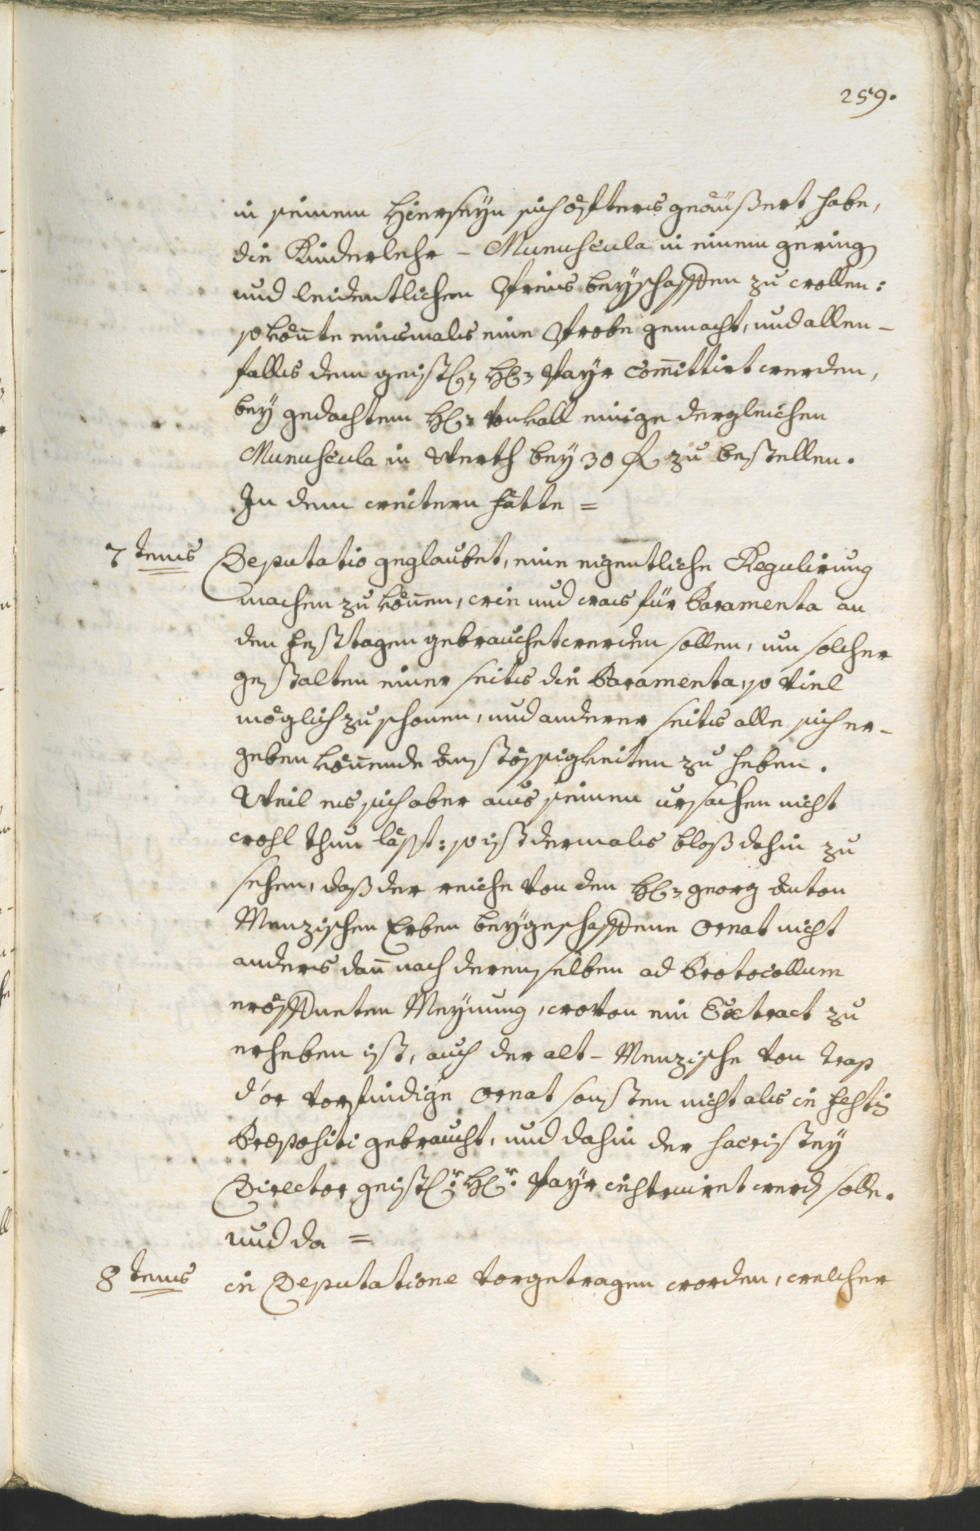 259.
in seinem Hierseyn sich öffters geäußert habe,
die Kinderlehr - Munuscula in einem gering
und leidentlichen Preis beyschaffen zu wollen:
so könte einsmals eine Probe gemacht, und allen-
falls dem geistl. H. Payr committirt werden,
bey gedachtem H. einige dergleichen
Munuscula in Werth bey 30 fl zu bestellen.
In dem weitern hätte =
7tens Deputatio geglaubet, eine eigentliche Regulirung
machen zu können, wie und was für Paramenta an
den Festtagen gebrauchet werden sollen, um solcher
gestalten einer seits die Paramenta, so viel
möglich zu schonen, und anderer seits alle sich er-
geben könnende Anstössigkeiten zu heben.
Weil es sich aber aus seinen ursachen nicht
wohl thun läßt: so ist dermals bloß dahin zu
sehen, daß der reiche von den H. Georg Anton
Menzischen Erben beygeschaffene Ornat nicht
anders dan nach derenselben ad Protocollum
eröffneten Meynung, wovon ein Extract zu
erheben ist, auch der alt-Menzische von trap
d'or vorfindige Ornat sonsten nicht als in festis
Præpositi gebraucht, und dahin der Sacristey
Director geistl.r H.r Payr instruiret werd solle.
und da =
8tens in Deputatione vorgetragen worden, welcher